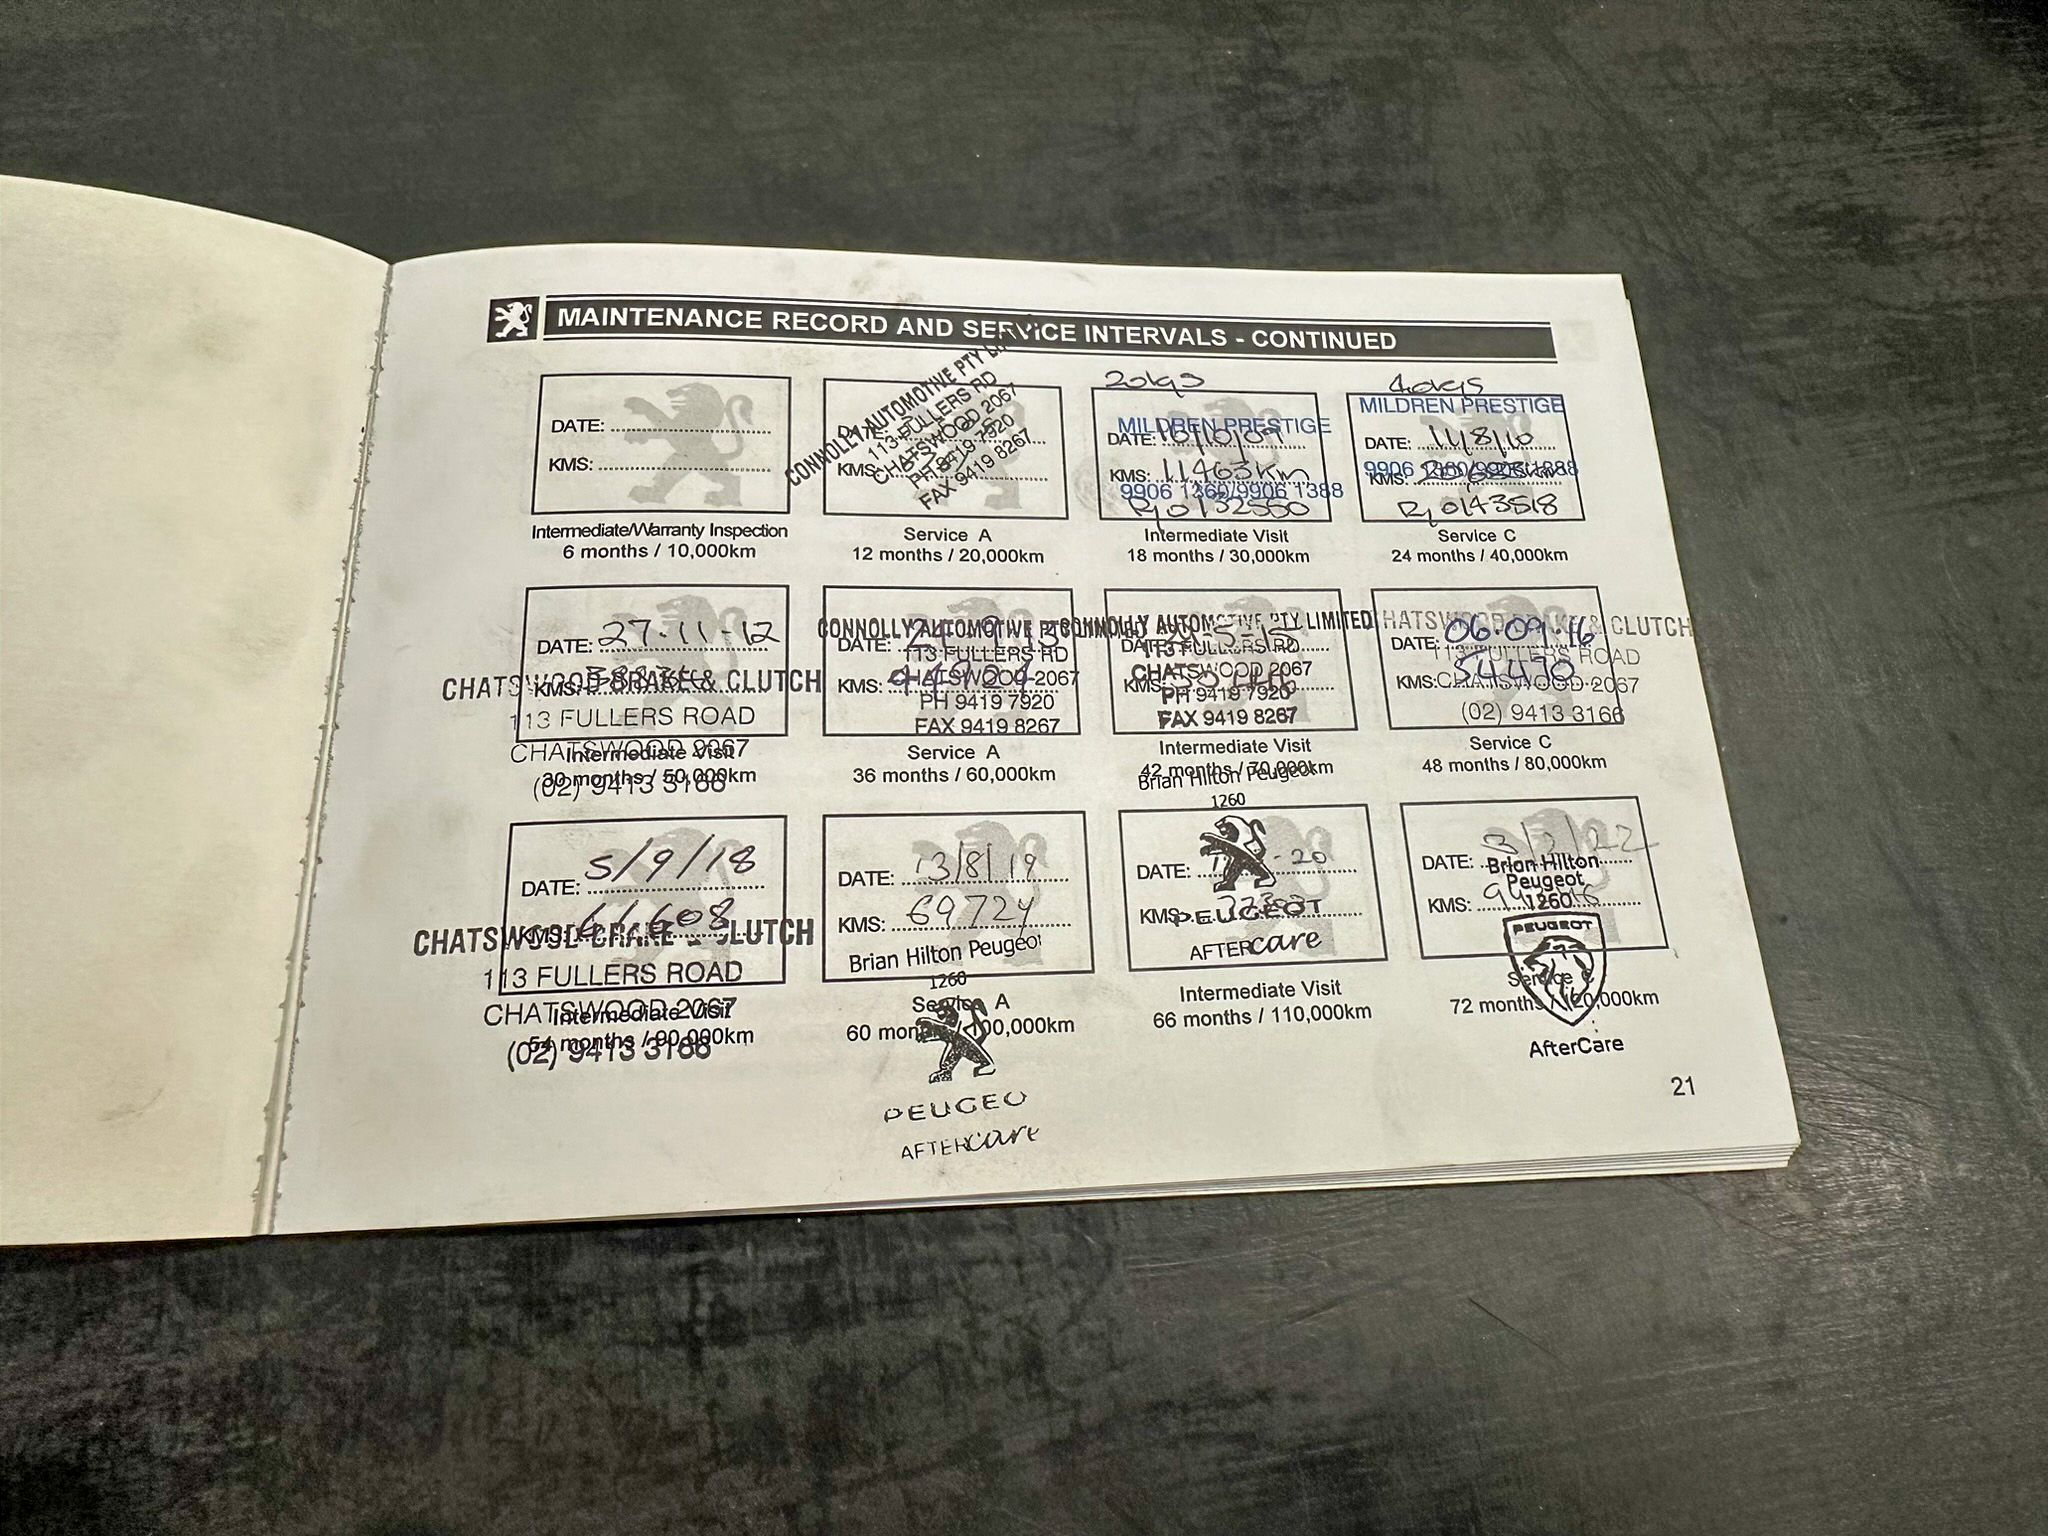 MAINTENANCE RECORD AND SERVICE INTERVALS - CONTINUED
DATE:
KMS:
Intermediate/Warranty Inspection
6 months / 10,000km
CONNOLLY AUTOMOTIVE PTY
113 FULLERS RD
CHATSWOOD 2067
PH 9419 7920
FAX 9419 8267
KMS:
Service A
12 months / 20,000km
MILDREN PRESTIGE
DATE: 10/10/09
KMS: 11463Km
9906 1360/9906 1388
Ro 132550
Intermediate Visit
18 months / 30,000km
MILDREN PRESTIGE
DATE: 11/8/10
KMS:
Ro 143518
Service C
24 months / 40,000km
DATE: 27-11-12
KMS:
CHATSWOOD BRAKE & CLUTCH
113 FULLERS ROAD
CHATSWOOD 2067
Intermediate Visit
30 months / 50,000km
(02) 9413 3166
CONNOLLY AUTOMOTIVE
DATE: 24-9-13
113 FULLERS RD
KMS:
CHATSWOOD 2067
PH 9419 7920
FAX 9419 8267
Service A
36 months / 60,000km
CONNOLLY AUTOMOTIVE PTY LIMITED
DATE:
113 FULLERS RD
CHATSWOOD 2067
KMS:
PH 9419 7920
FAX 9419 8267
Intermediate Visit
42 months / 70,000km
CHATSWOOD BRAKE & CLUTCH
DATE: 06-09-16
113 FULLERS ROAD
KMS: 54490
CHATSWOOD 2067
(02) 9413 3166
Service C
48 months / 80,000km
DATE: 5/9/18
KMS:
CHATSWOOD BRAKE & CLUTCH
113 FULLERS ROAD
CHATSWOOD 2067
Intermediate Visit
54 months / 90,000km
(02) 9413 3166
DATE: 13/8/19
KMS: 69724
Brian Hilton Peugeot
1260
Service A
60 months / 100,000km
PEUGEO
AFTERcare
Brian Hilton Peugeot
1260
DATE: -20
KMS:
PEUGEOT
AFTERcare
Intermediate Visit
66 months / 110,000km
DATE: 3/2/22
Brian Hilton
Peugeot
KMS:
1260
PEUGEOT
Service C
72 months / 120,000km
AfterCare
21